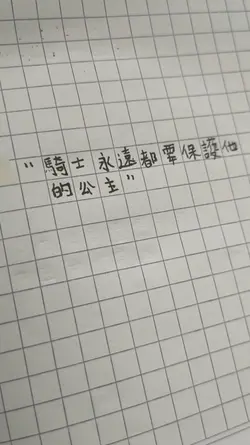 “騎士永遠都要保護他
的公主”